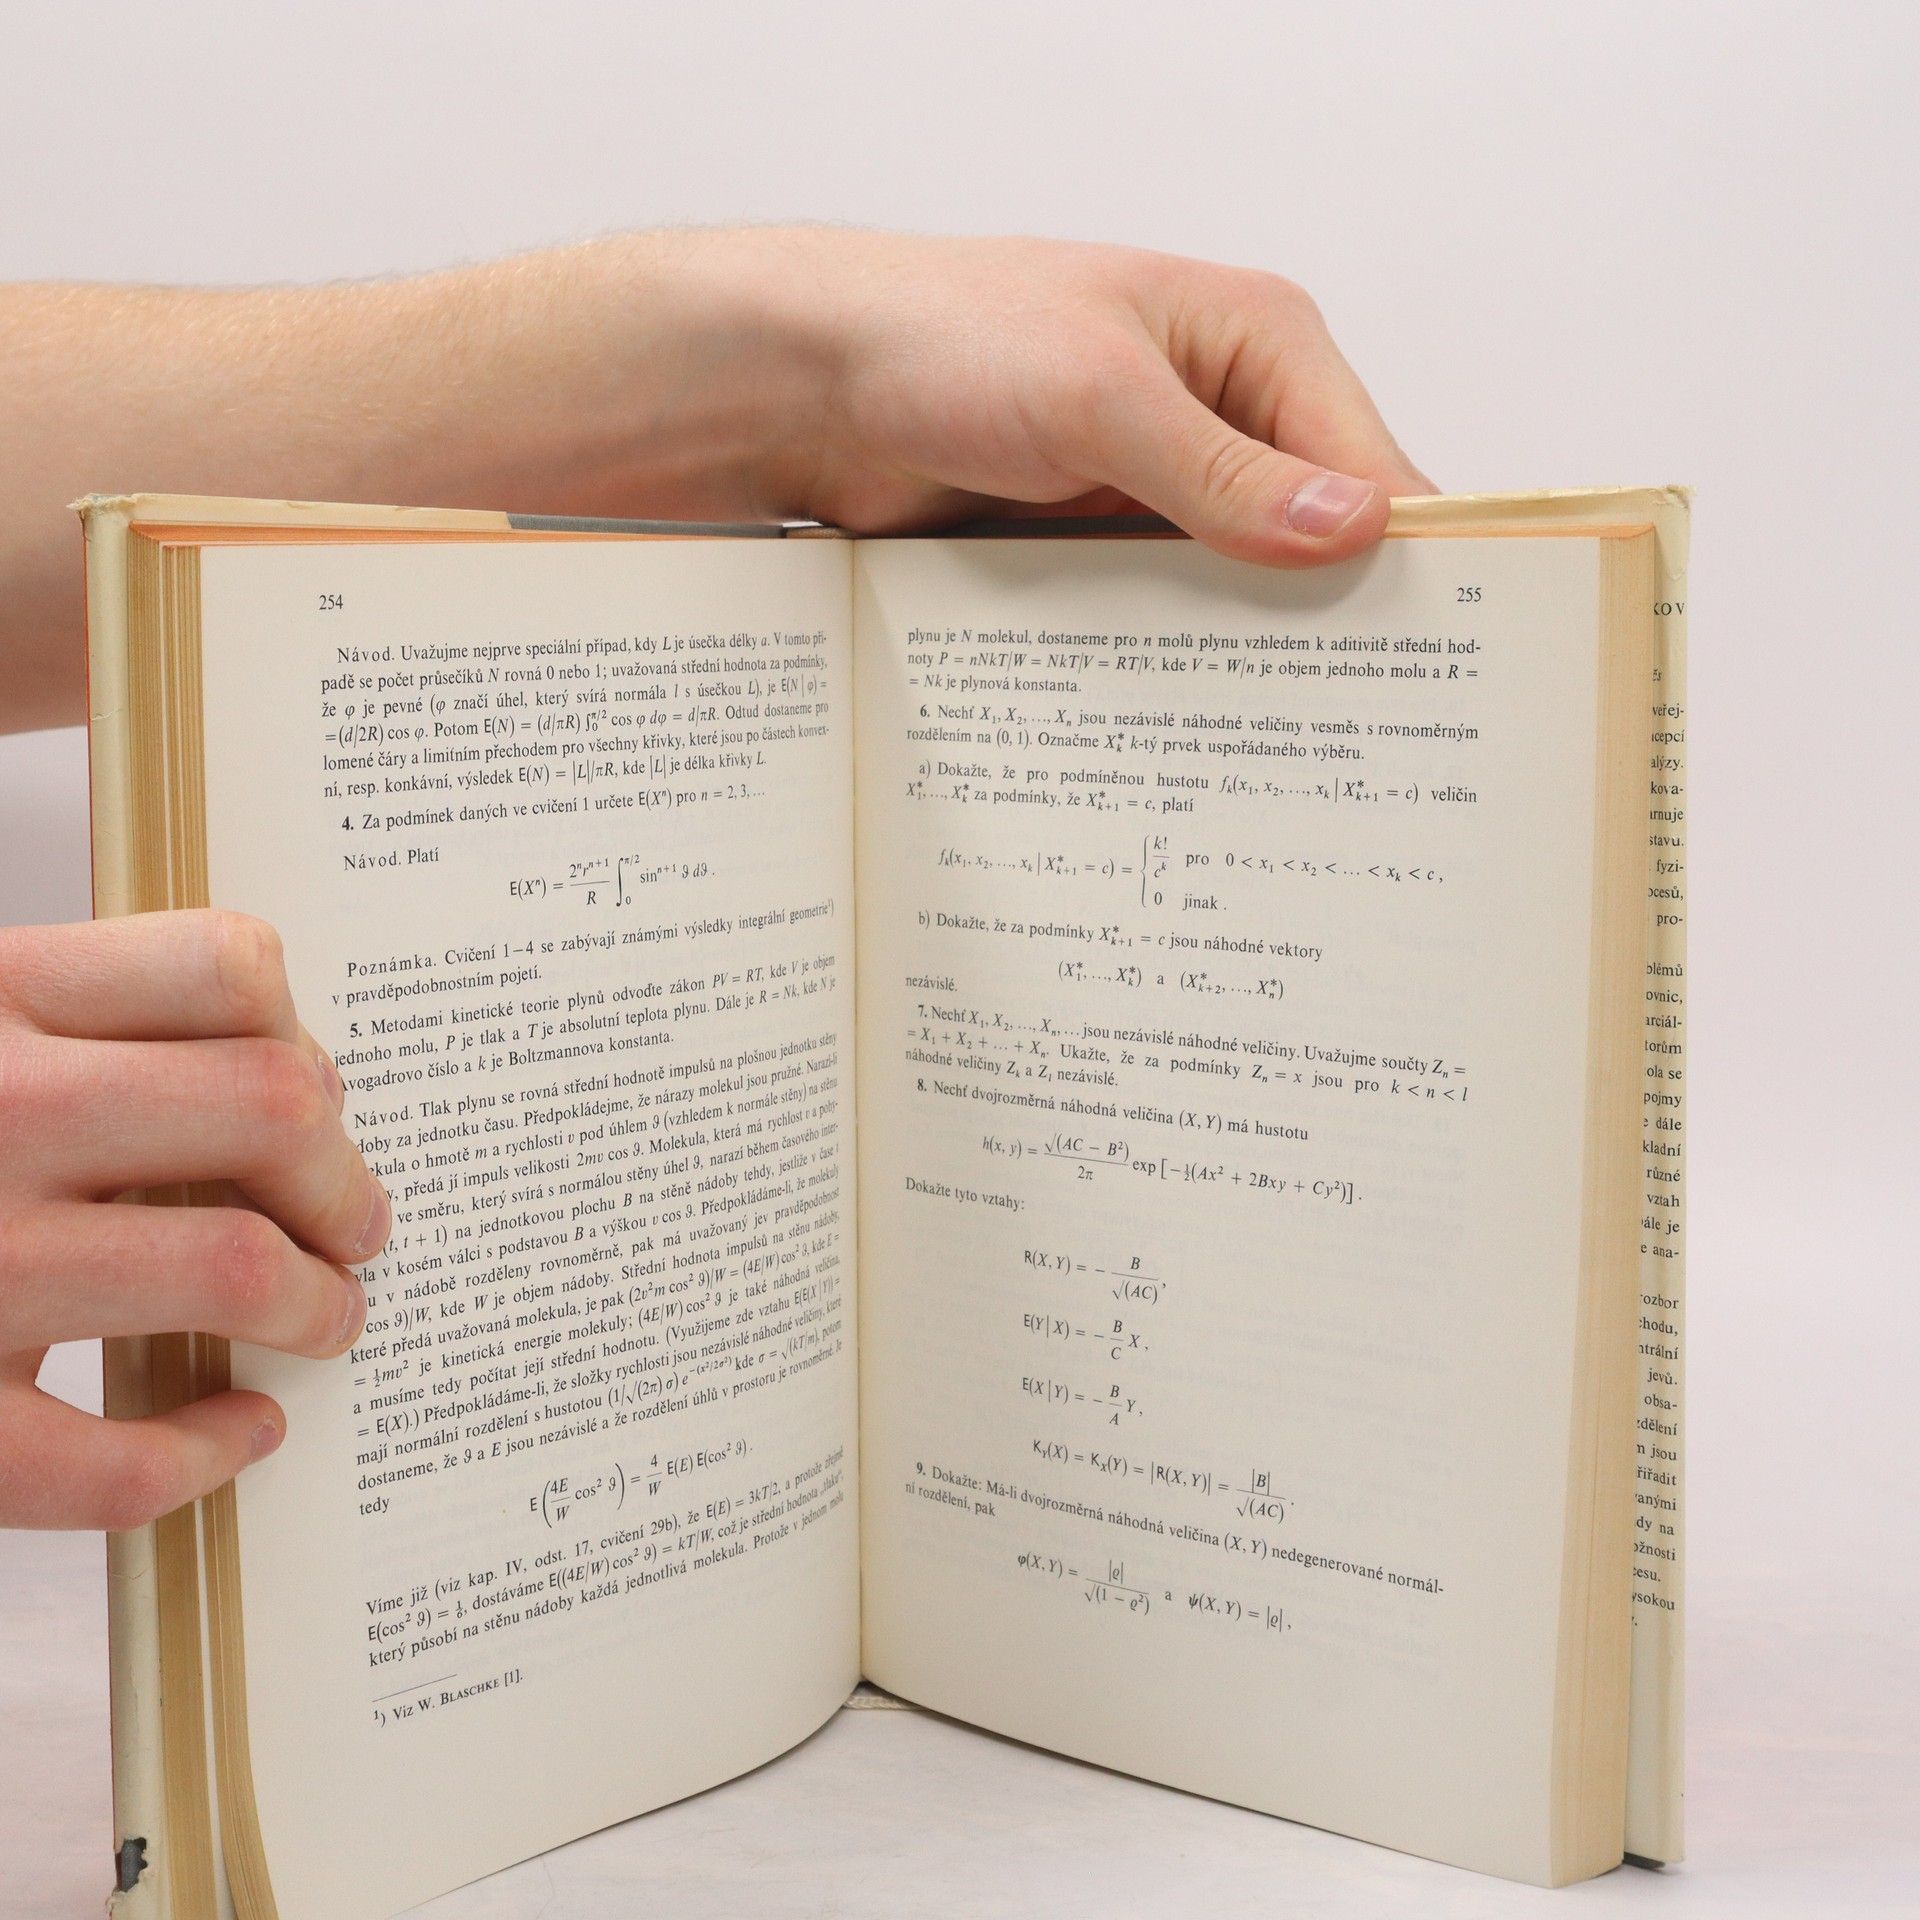 254
Návod. Uvažujme nejprve speciální případ, kdy L je úsečka délky a. V tomto pří-
padě se počet průsečíků N rovná 0 nebo 1; uvažovaná střední hodnota za podmínky,
že φ je pevné (φ značí úhel, který svírá normála l s úsečkou L), je E(N | φ) =
= (d/2R) cos φ. Potom E(N) = (d/πR) ∫₀^{π/2} cos φ dφ = d/πR. Odtud dostaneme pro
lomené čáry a limitním přechodem pro všechny křivky, které jsou po částech konvex-
ní, resp. konkávní, výsledek E(N) = |L|/πR, kde |L| je délka křivky L.
4. Za podmínek daných ve cvičení 1 určete E(Xⁿ) pro n = 2, 3, ...
Návod. Platí
E(Xⁿ) = 2ⁿrⁿ⁺¹/R ∫₀^{π/2} sinⁿ⁺¹ ϑ dϑ .
Poznámka. Cvičení 1–4 se zabývají známými výsledky integrální geometrie¹)
v pravděpodobnostním pojetí.
5. Metodami kinetické teorie plynů odvoďte zákon PV = RT, kde V je objem
jednoho molu, P je tlak a T je absolutní teplota plynu. Dále je R = Nk, kde N je
Avogadrovo číslo a k je Boltzmannova konstanta.
Návod. Tlak plynu se rovná střední hodnotě impulsů na plošnou jednotku stěny
doby za jednotku času. Předpokládejme, že nárazy molekul jsou pružné. Narazí-li
ekula o hmotě m a rychlosti v pod úhlem ϑ (vzhledem k normále stěny) na stěnu
y, předá jí impuls velikosti 2mv cos ϑ. Molekula, která má rychlost v a pohy-
ve směru, který svírá s normálou stěny úhel ϑ, narazí během časového inter-
(t, t + 1) na jednotkovou plochu B na stěně nádoby tehdy, jestliže v čase t
yla v kosém válci s podstavou B a výškou v cos ϑ. Předpokládáme-li, že molekuly
u v nádobě rozděleny rovnoměrně, pak má uvažovaný jev pravděpodobnost
cos ϑ)/W, kde W je objem nádoby. Střední hodnota impulsů na stěnu nádoby,
které předá uvažovaná molekula, je pak (2v²m cos² ϑ)/W = (4E/W) cos² ϑ, kde E =
= ½mv² je kinetická energie molekuly; (4E/W) cos² ϑ je také náhodná veličina,
a musíme tedy počítat její střední hodnotu. (Využijeme zde vztahu E(E(X | Y)) =
= E(X).) Předpokládáme-li, že složky rychlosti jsou nezávislé náhodné veličiny, které
mají normální rozdělení s hustotou (1/√(2π) σ) e^{−(x²/2σ²)} kde σ = √(kT/m), potom
dostaneme, že ϑ a E jsou nezávislé a že rozdělení úhlů v prostoru je rovnoměrné. Je
tedy
E (4E/W cos² ϑ) = 4/W E(E) E(cos² ϑ) .
Víme již (viz kap. IV, odst. 17, cvičení 29b), že E(E) = 3kT/2, a protože zřejmě
E(cos² ϑ) = 1/6, dostáváme E((4E/W) cos² ϑ) = kT/W, což je střední hodnota „tlaku",
který působí na stěnu nádoby každá jednotlivá molekula. Protože v jednom molu
¹) Viz W. BLASCHKE [1].
255
plynu je N molekul, dostaneme pro n molů plynu vzhledem k aditivitě střední hod-
noty P = nNkT/W = NkT/V = RT/V, kde V = W/n je objem jednoho molu a R =
= Nk je plynová konstanta.
6. Nechť X₁, X₂, ..., Xₙ jsou nezávislé náhodné veličiny vesměs s rovnoměrným
rozdělením na (0, 1). Označme X*ₖ k-tý prvek uspořádaného výběru.
a) Dokažte, že pro podmíněnou hustotu fₖ(x₁, x₂, ..., xₖ | X*ₖ₊₁ = c) veličin
X*₁, ..., X*ₖ za podmínky, že X*ₖ₊₁ = c, platí
fₖ(x₁, x₂, ..., xₖ | X*ₖ₊₁ = c) = { k!/cᵏ pro 0 < x₁ < x₂ < ... < xₖ < c ,
0 jinak .
b) Dokažte, že za podmínky X*ₖ₊₁ = c jsou náhodné vektory
(X*₁, ..., X*ₖ) a (X*ₖ₊₂, ..., X*ₙ)
nezávislé.
7. Nechť X₁, X₂, ..., Xₙ, ... jsou nezávislé náhodné veličiny. Uvažujme součty Zₙ =
= X₁ + X₂ + ... + Xₙ. Ukažte, že za podmínky Zₙ = x jsou pro k < n < l
náhodné veličiny Zₖ a Zₗ nezávislé.
8. Nechť dvojrozměrná náhodná veličina (X, Y) má hustotu
h(x, y) = √(AC − B²)/2π exp [−½(Ax² + 2Bxy + Cy²)] .
Dokažte tyto vztahy:
R(X, Y) = − B/√(AC) ,
E(Y | X) = − B/C X ,
E(X | Y) = − B/A Y ,
K_Y(X) = K_X(Y) = |R(X, Y)| = |B|/√(AC) .
9. Dokažte: Má-li dvojrozměrná náhodná veličina (X, Y) nedegenerované normál-
ní rozdělení, pak
φ(X, Y) = |ϱ|/√(1 − ϱ²) a ψ(X, Y) = |ϱ| ,
KOV
veřej-
cepcí
alýzy.
kova-
rnuje
stavu.
fyzi-
ocesů,
pro-
blémů
ovnic,
arciál-
torům
ola se
pojmy
e dále
kladní
různé
vztah
ále je
e ana-
rozbor
chodu,
ntrální
jevů.
obsa-
zdělení
m jsou
řiřadit
vanými
dy na
ožnosti
cesu.
ysokou